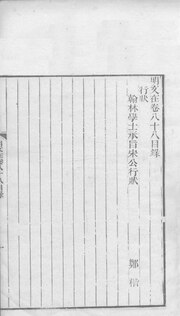 明文在卷八十八目錄
行狀
翰林學士承旨宋公行狀
鄭楷